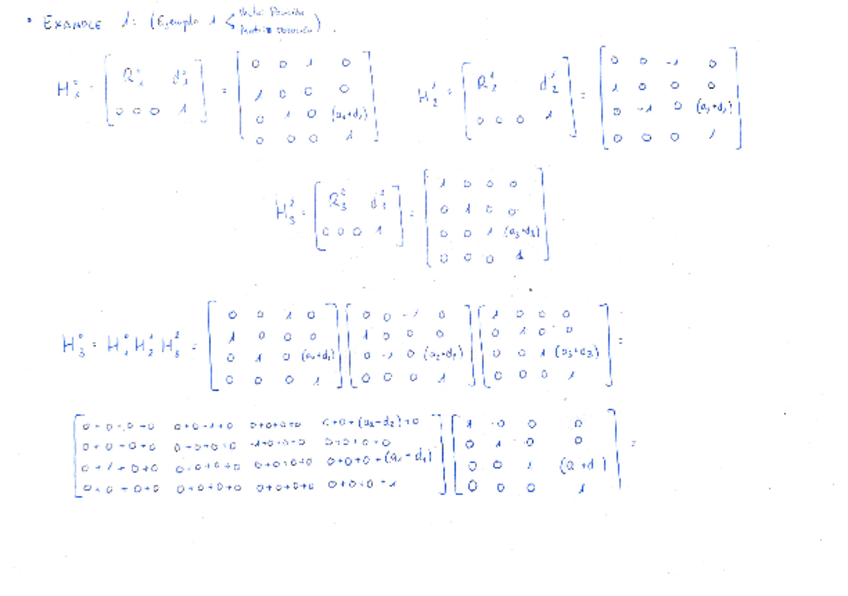 • EXAMPLE 1: (Ejemplo 1 < Vector Posición
Matriz Rotación).
H₁⁰ = [ R₁⁰ d₁⁰ ; 0 0 0 1 ] = [ 0 0 1 0 ; 1 0 0 0 ; 0 1 0 (a₁+d₁) ; 0 0 0 1 ] H₂¹ = [ R₂¹ d₂¹ ; 0 0 0 1 ] = [ 0 0 -1 0 ; 1 0 0 0 ; 0 -1 0 (a₂+d₂) ; 0 0 0 1 ]
H₃² = [ R₃² d₃² ; 0 0 0 1 ] = [ 1 0 0 0 ; 0 1 0 0 ; 0 0 1 (a₃+d₃) ; 0 0 0 1 ]
H₃⁰ = H₁⁰ H₂¹ H₃² = [ 0 0 1 0 ; 1 0 0 0 ; 0 1 0 (a₁+d₁) ; 0 0 0 1 ] [ 0 0 -1 0 ; 1 0 0 0 ; 0 -1 0 (a₂+d₂) ; 0 0 0 1 ] [ 1 0 0 0 ; 0 1 0 0 ; 0 0 1 (a₃+d₃) ; 0 0 0 1 ] =
0+0+0+0 0+0-1+0 0+0+0+0 0+0+(a₂+d₂)+0 1 0 0 0
0+0+0+0 0+0+0+0 -1+0+0+0 0+0+0+0 0 1 0 0 =
0+1+0+0 0+0+0+0 0+0+0+0 0+0+0+(a₁+d₁) 0 0 1 (a+d)
0+0+0+0 0+0+0+0 0+0+0+0 0+0+0+1 0 0 0 1